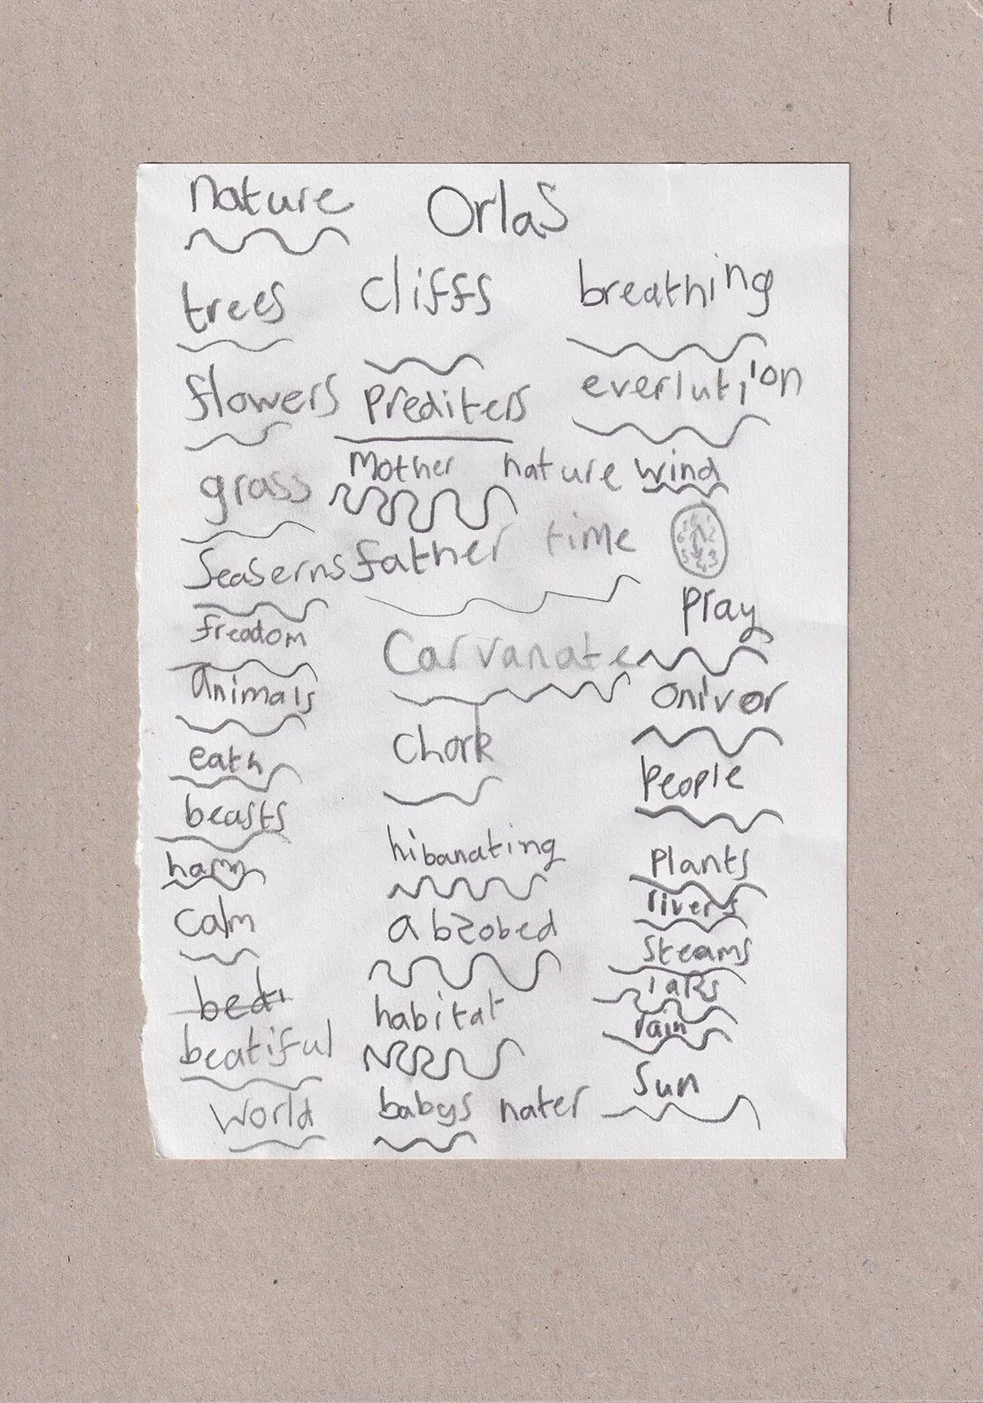 nature
Orlas
trees
flowers
grass
Seaserns
freadom
animals
eath
beasts
harm
calm
beatiful
World
cliffs
Prediters
Mother nature
father time
Carvanate
Chork
hibanating
abzobed
habitat
babys nater
breathing
everlution
wind
Pray
onivor
People
Plants
rivers
Steams
rain
Sun